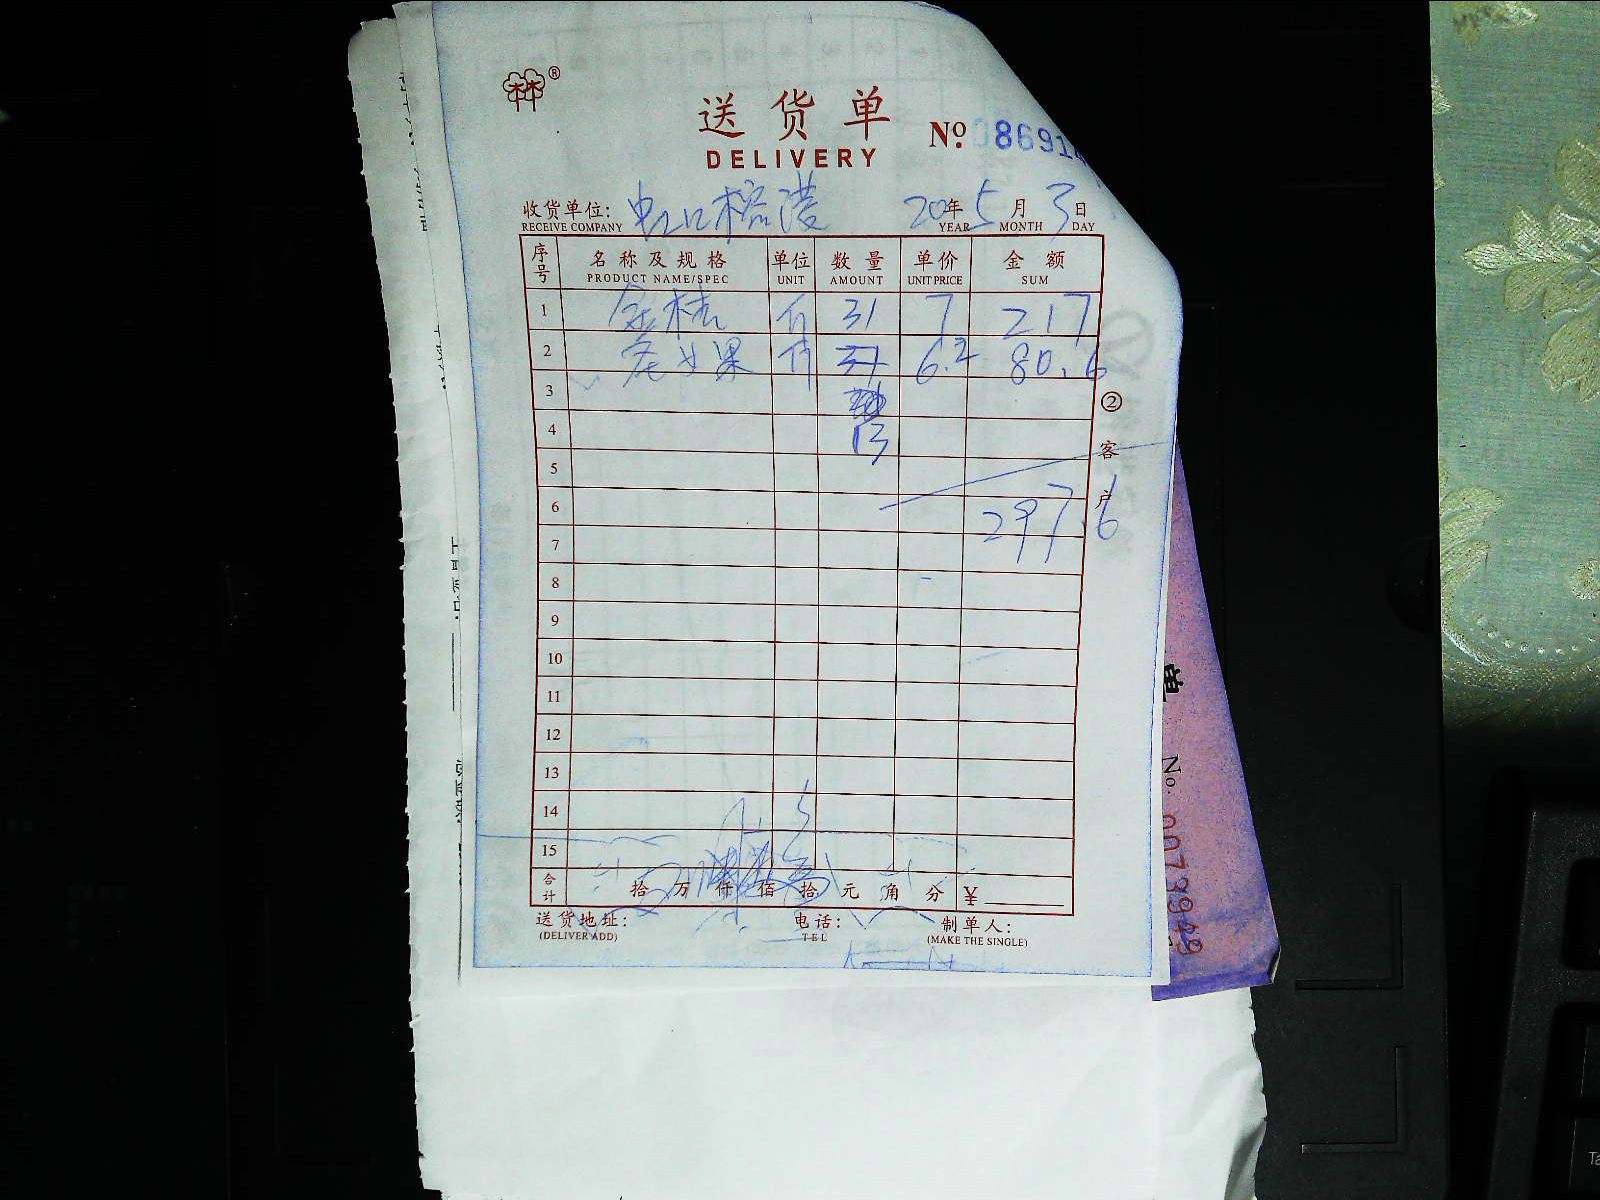 林 ®
送货单
DELIVERY
№ 086914
收货单位: 虹口榕港 20年5月3日
RECEIVE COMPANY YEAR MONTH DAY
序号 名称及规格 单位 数量 单价 金额
PRODUCT NAME/SPEC UNIT AMOUNT UNIT PRICE SUM
1 金桔 斤 31 7 217
2 圣女果 斤 6.2 80.6
3
4 13
5
6 297.6
7
8
9
10
11
12
13
14
15
② 客户
合计 拾 万 仟 佰 拾 元 角 分 ¥
送货地址: 电话: 制单人:
(DELIVER ADD) TEL (MAKE THE SINGLE)
单
No. 0073949